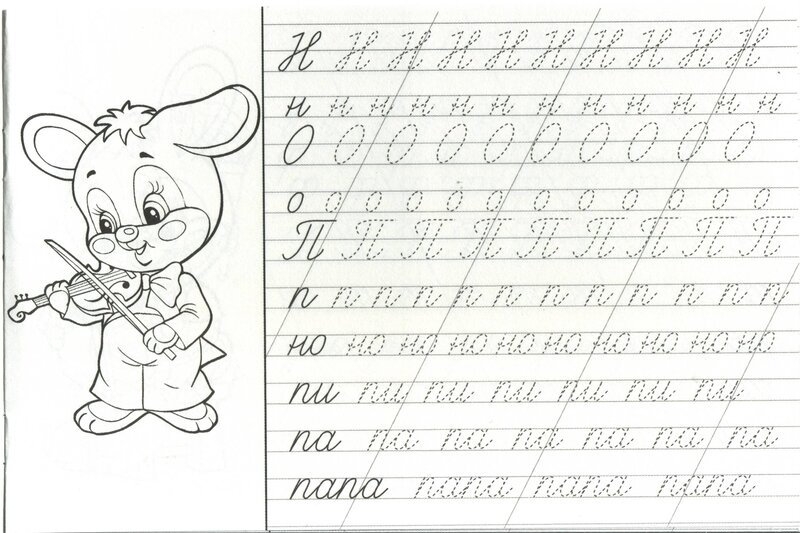 Н Н Н Н Н Н Н Н Н Н
н н н н н н н н н н н н
О О О О О О О О О О
о о о о о о о о о о о о
П П П П П П П П П
п п п п п п п п п п п п
но но но но но но но но но но
пи пи пи пи пи пи пи
па па па па па па па
папа папа папа папа